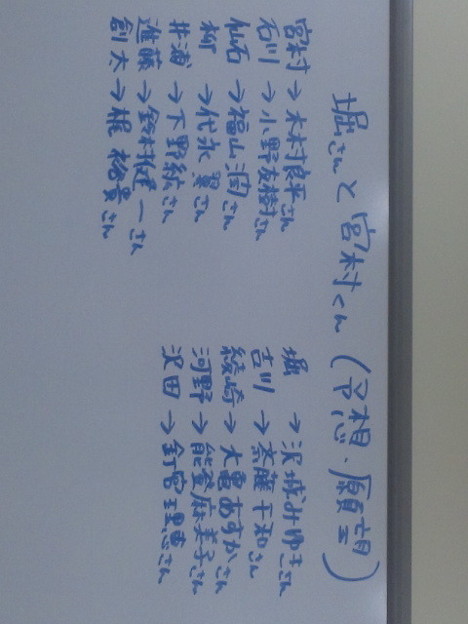 堀さんと宮村くん(予想・願望)
宮村→木村良平さん
石川→小野友樹さん
仙石→福山潤さん
柳→代永翼さん
井浦→下野紘さん
進藤→鈴村健一さん
創太→梶裕貴さん
堀→沢城みゆきさん
吉川→斎藤千和さん
綾崎→大亀あすかさん
河野→能登麻美子さん
沢田→釘宮理恵さん